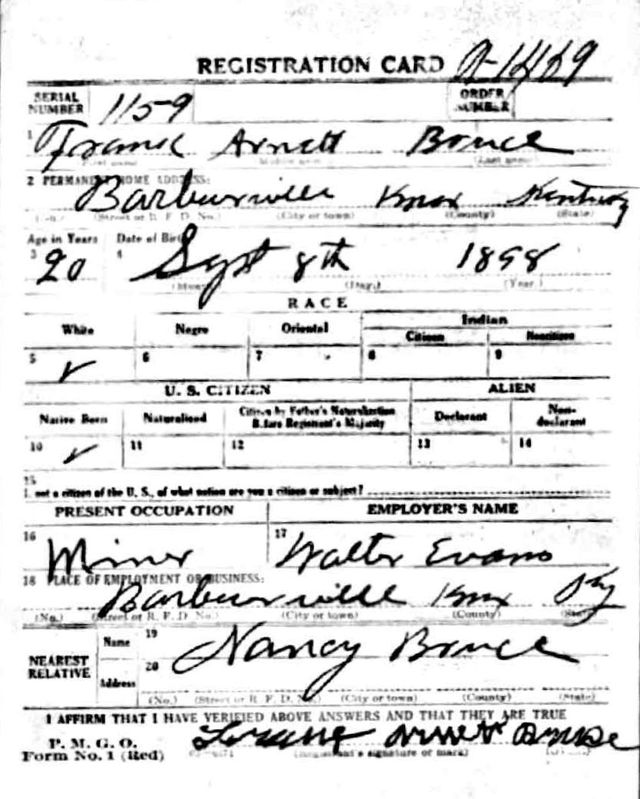 REGISTRATION CARD A-1469
SERIAL NUMBER 1159 ORDER NUMBER
1 Frank Arnett Bruce
(First name) (Middle name) (Last name)
2 PERMANENT HOME ADDRESS:
Barbursville Knox Kentucky
(No.) (Street or R. F. D. No.) (City or town) (County) (State)
Age in Years Date of Birth
3 20 4 Sept 8th 1898
(Month) (Day) (Year.)
RACE
White Negro Oriental Indian
Citizen Noncitizen
5 ✓ 6 7 8 9
U. S. CITIZEN ALIEN
Native Born Naturalized Citizen by Father's Naturalization Before Registrant's Majority Declarant Non-declarant
10 ✓ 11 12 13 14
15
not a citizen of the U. S., of what nation are you a citizen or subject?
PRESENT OCCUPATION EMPLOYER'S NAME
16 Miner 17 Walter Evans
18 PLACE OF EMPLOYMENT OR BUSINESS:
Barbursville Knox Ky
(No.) (Street or R. F. D. No.) (City or town) (County) (State)
NEAREST RELATIVE Name 19 Nancy Bruce
Address 20
(No.) (Street or R. F. D. No.) (City or town) (County) (State)
I AFFIRM THAT I HAVE VERIFIED ABOVE ANSWERS AND THAT THEY ARE TRUE
P. M. G. O.
Form No. 1 (Red) Arnett Bruce
(Registrant's signature or mark)